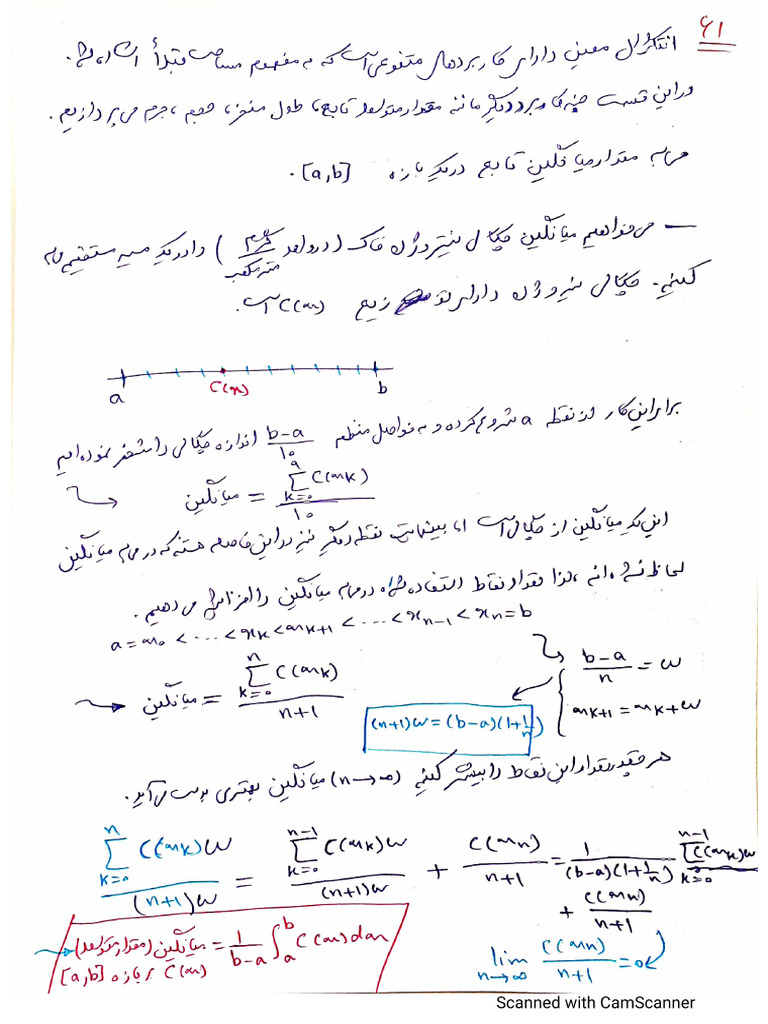 ۶۱
انتگرال معین دارای کاربردهای متنوعی است که به مفهوم مساحت
در این قسمت چند کاربرد دیگر مانند مقدار متوسط تابع، طول منحنی، حجم، جرم می‌پردازیم.
محاسبه مقدار میانگین تابع در یک بازه [a,b].
— می‌خواهیم میانگین چگالی نیتروژن خاک (در واحد گرم / متر مکعب) را در یک مسیر مستقیم
کنیم. چگالی نیتروژن دارای توزیع C(x) است.
a C(x) b
برای این کار از نقطه a شروع کرده و به فواصل منظم (b-a)/۱۰ اندازه چگالی را
میانگین = (∑_{k=0}^{9} C(x_k))/۱۰
این یک میانگین از چگالی است اما بینهایت نقطه دیگر نیز در این فاصله هستند که در میانگین
لحاظ نشده‌اند، لذا تعداد نقاط استفاده شده در میانگین را افزایش می‌دهیم.
a = x_0 < ... < x_k < x_{k+1} < ... < x_{n-1} < x_n = b
میانگین = (∑_{k=0}^{n} C(x_k))/(n+1)
(b-a)/n = w
x_{k+1} = x_k + w
(n+1)w = (b-a)(1+1/n)
هر چقدر تعداد این نقاط را بیشتر کنیم (n→∞) میانگین بهتری بدست می‌آید.
(∑_{k=0}^{n} C(x_k)w)/((n+1)w) = (∑_{k=0}^{n-1} C(x_k)w)/((n+1)w) + C(x_n)/(n+1) = 1/((b-a)(1+1/n)) ∑_{k=0}^{n-1} C(x_k)w
+ C(x_n)/(n+1)
lim_{n→∞} C(x_n)/(n+1) = 0
میانگین (مقدار متوسط) = 1/(b-a) ∫_a^b C(x)dx
C(x) بر بازه [a,b]
Scanned with CamScanner